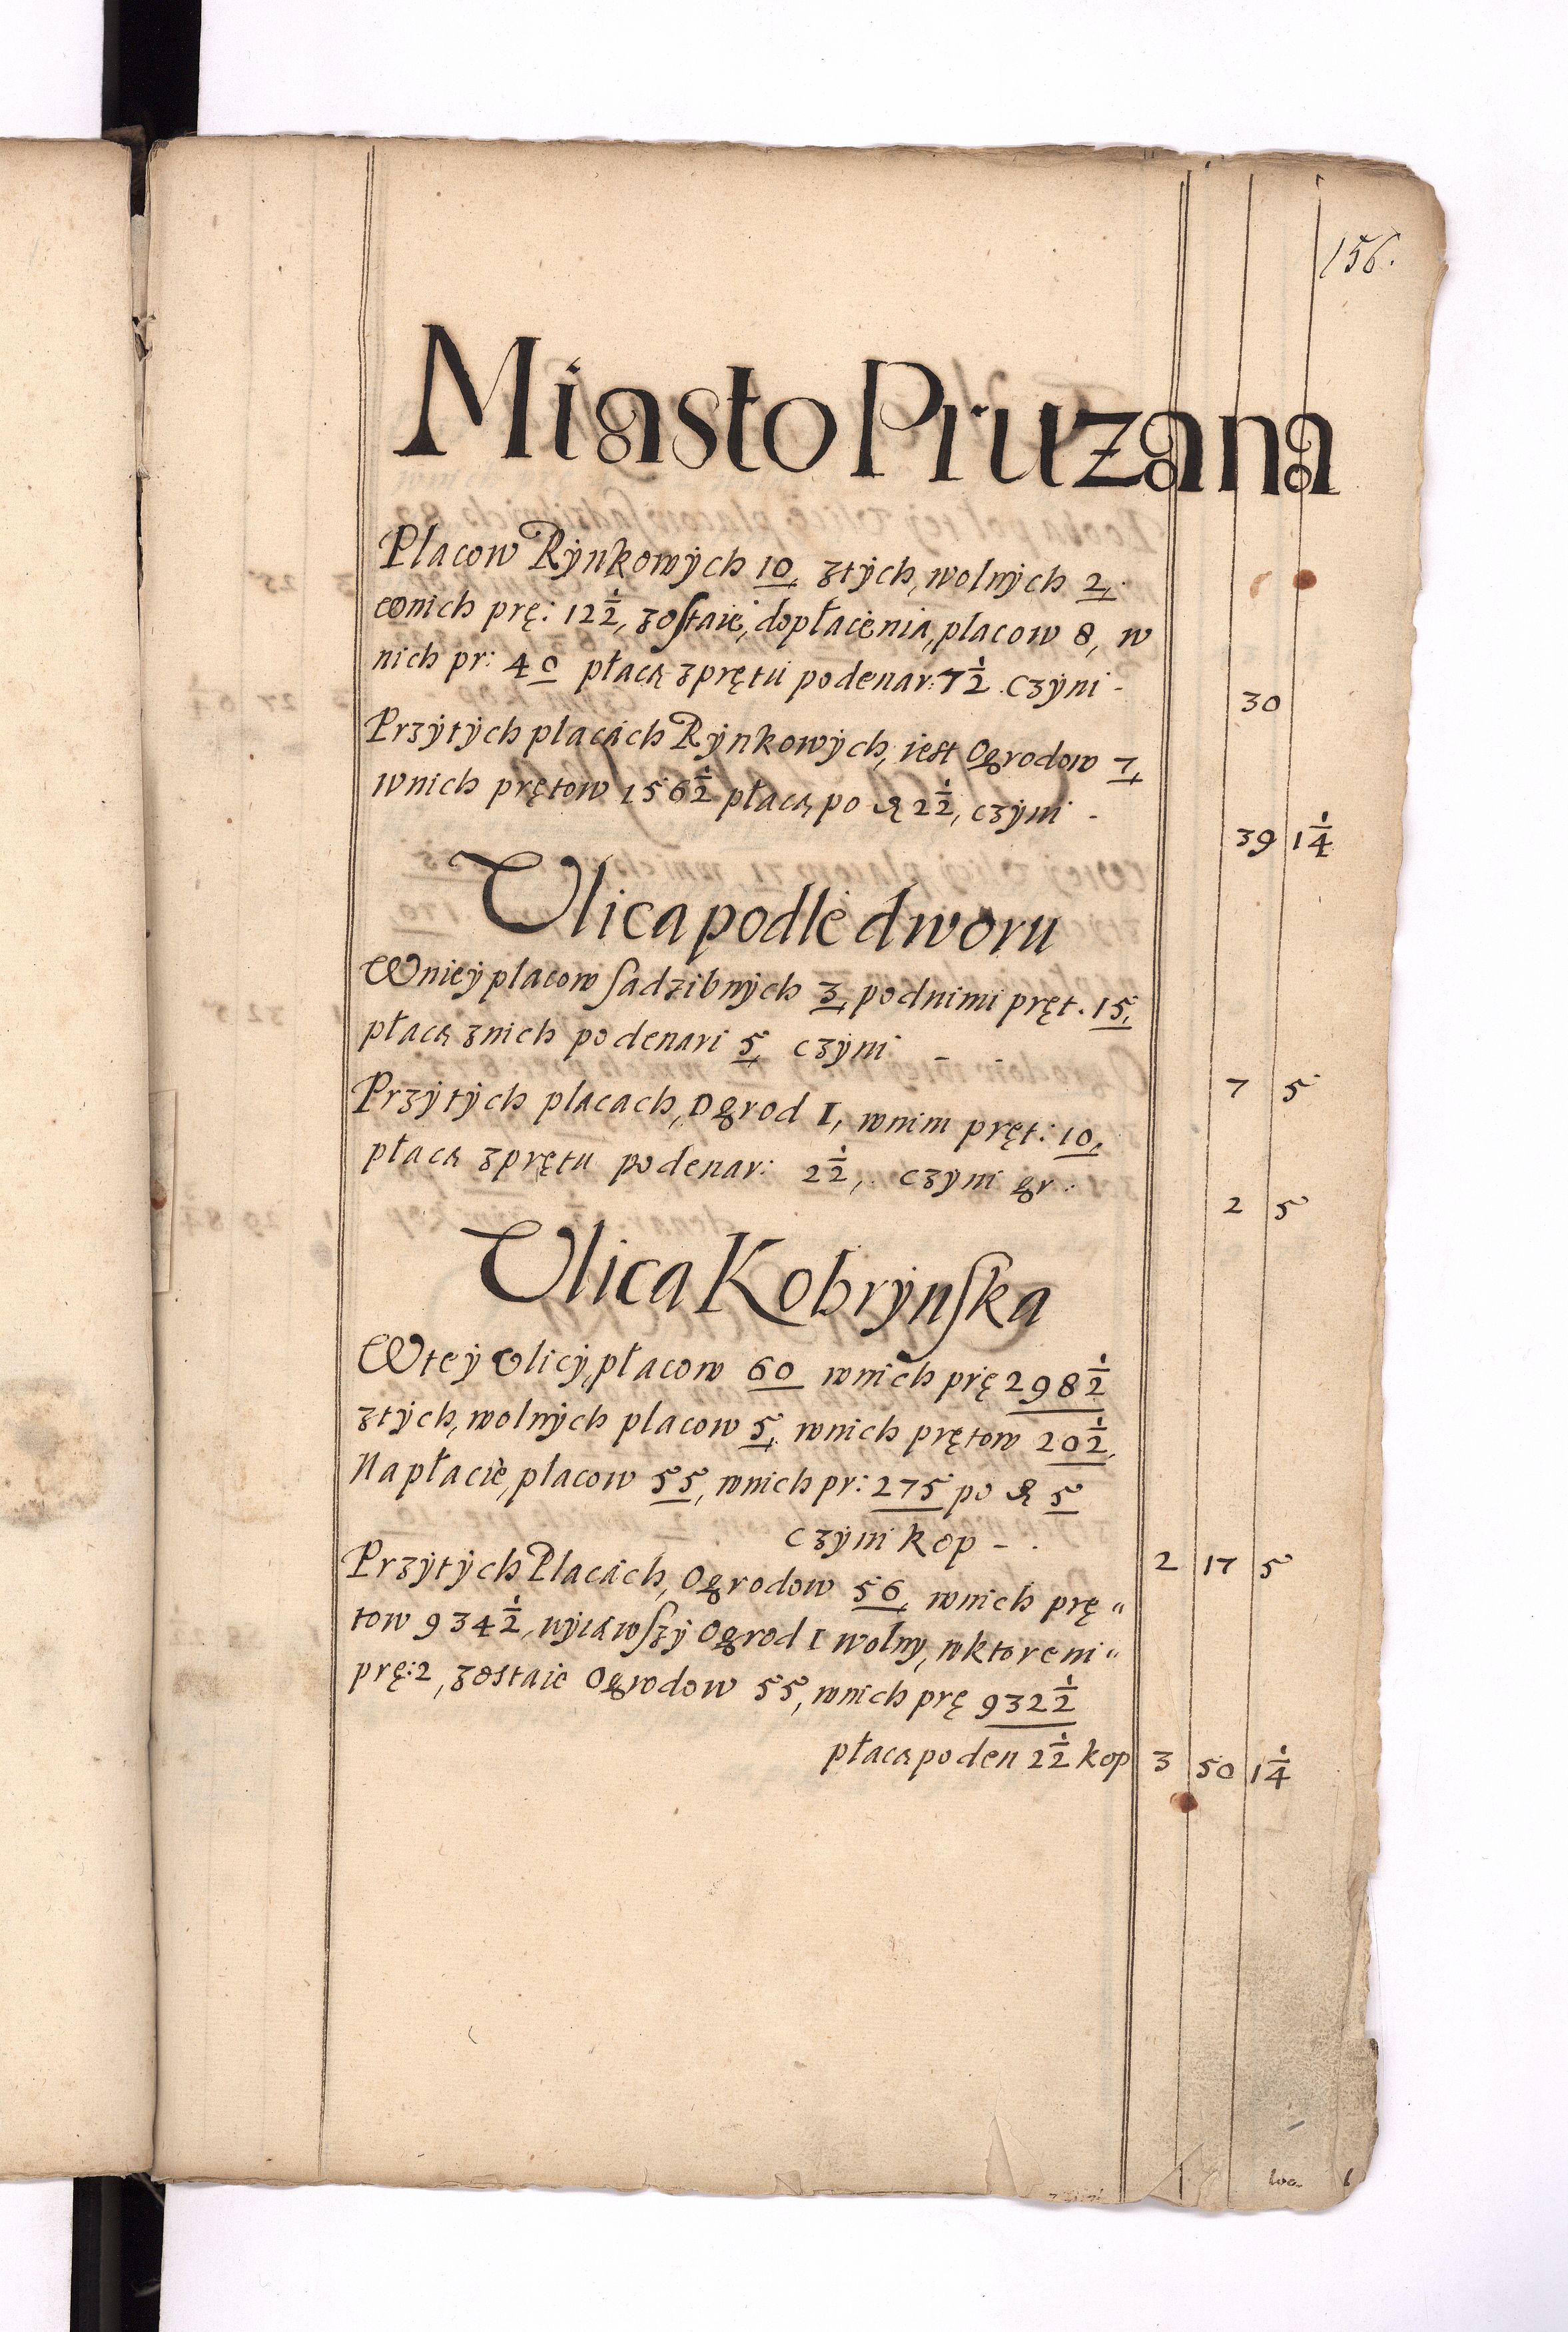 156.
Miasto Pruzana
Placow Rÿnkowÿch 10, ztÿch, wolnÿch 2,
wnich prę: 12 1/2, zostaie, dopłacenia, placow 8, w
nich pr: 40 płacą zprętu podenar: 7 1/2 . czÿni - 30
Przÿtÿch placach Rÿnkowÿch, iest Ogrodow 7,
wnich prętow 156 1/2 płacą po ₰ 2 1/2, czÿni - 39 1 1/4
Vlica podle dworu
Wnieÿ placow sadzibnÿch 3, podnimi pręt. 15,
płacą znich po denari 5, czÿni - 7 5
Przÿtÿch placach, Ogrod I, wnim pręt: 10,
płacą zprętu po denar: 2 1/2, czÿni gr: 2 5
Vlica Kobrÿnska
Wteÿ vlicÿ, płacow 60 wnich prę 298 1/2
ztÿch, wolnÿch placow 5, wnich prętow 20 1/2,
Na płacie, placow 55, wnich pr: 275 po ₰ 5
czÿni kop - . 2 17 5
Przÿtÿch Placach, Ogrodow 56, wnich prę"
tow 934 1/2, wÿiąwszÿ Ogrod I wolny, wktorem"
prę: 2, zostaie Ogrodow 55, wnich prę 932 1/2
płacą po den 2 1/2 kop 3 50 1 1/4